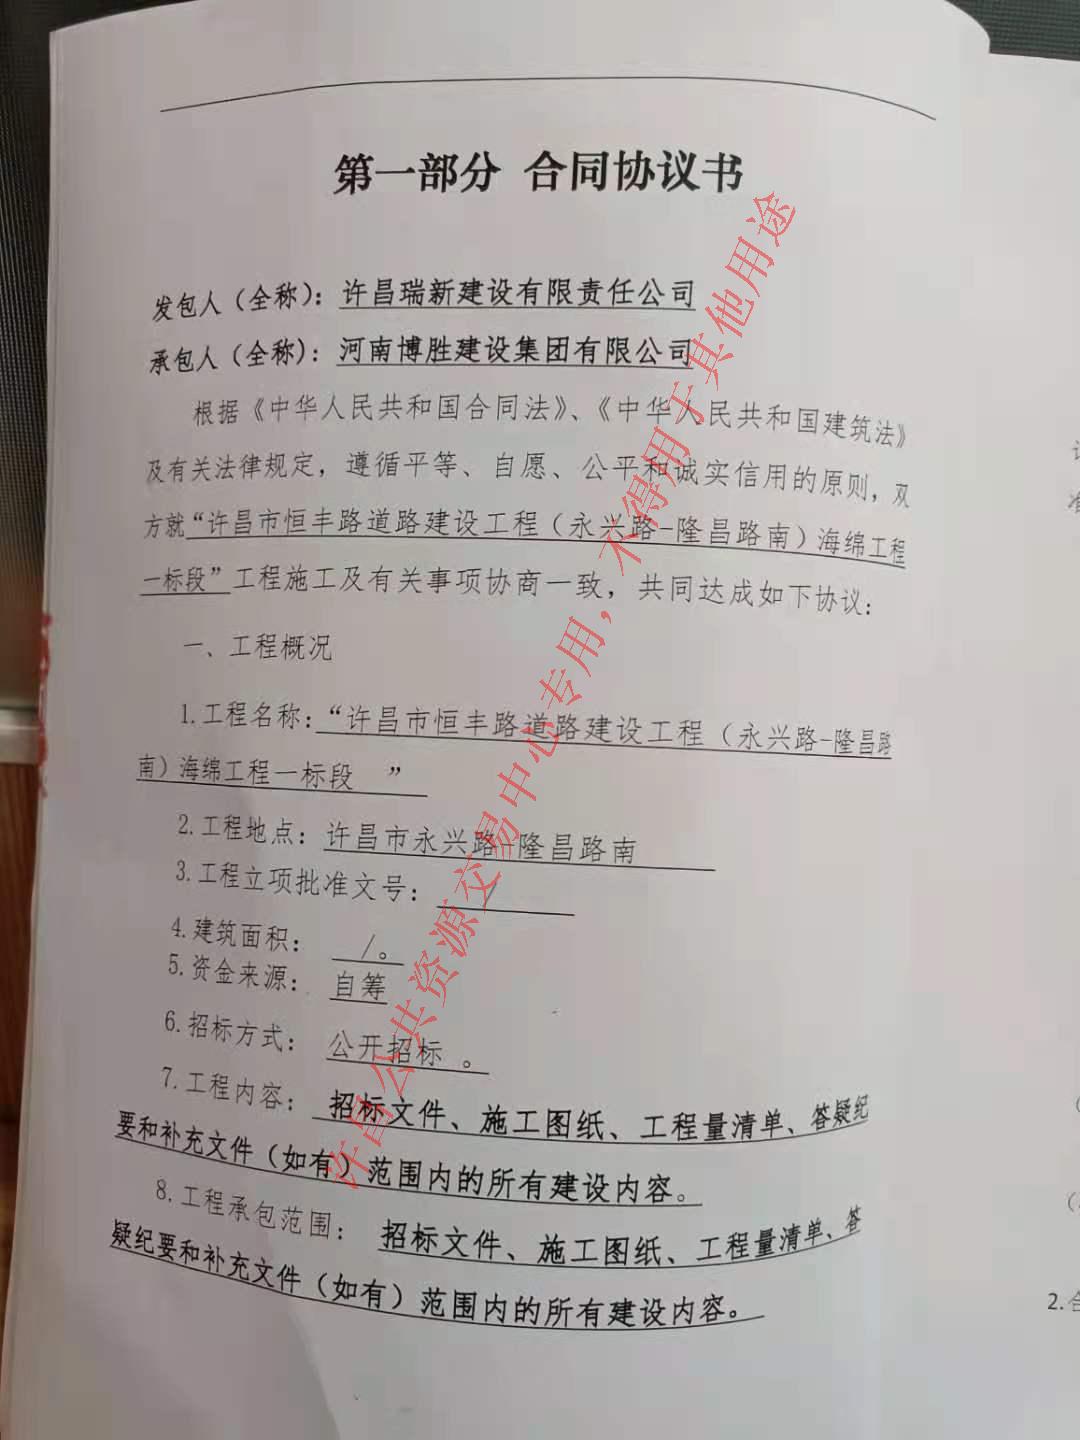 第一部分 合同协议书
发包人（全称）：许昌瑞新建设有限责任公司
承包人（全称）：河南博胜建设集团有限公司
根据《中华人民共和国合同法》、《中华人民共和国建筑法》
及有关法律规定，遵循平等、自愿、公平和诚实信用的原则，双
方就“许昌市恒丰路道路建设工程（永兴路-隆昌路南）海绵工程
一标段”工程施工及有关事项协商一致，共同达成如下协议：
一、工程概况
1.工程名称：“许昌市恒丰路道路建设工程（永兴路-隆昌路
南）海绵工程一标段 ”
2.工程地点：许昌市永兴路-隆昌路南
3.工程立项批准文号： /
4.建筑面积： /。
5.资金来源： 自筹
6.招标方式： 公开招标 。
7.工程内容： 招标文件、施工图纸、工程量清单、答疑纪
要和补充文件（如有）范围内的所有建设内容。
8.工程承包范围： 招标文件、施工图纸、工程量清单、答
疑纪要和补充文件（如有）范围内的所有建设内容。
许昌公共资源交易中心专用，不得用于其他用途
2.合